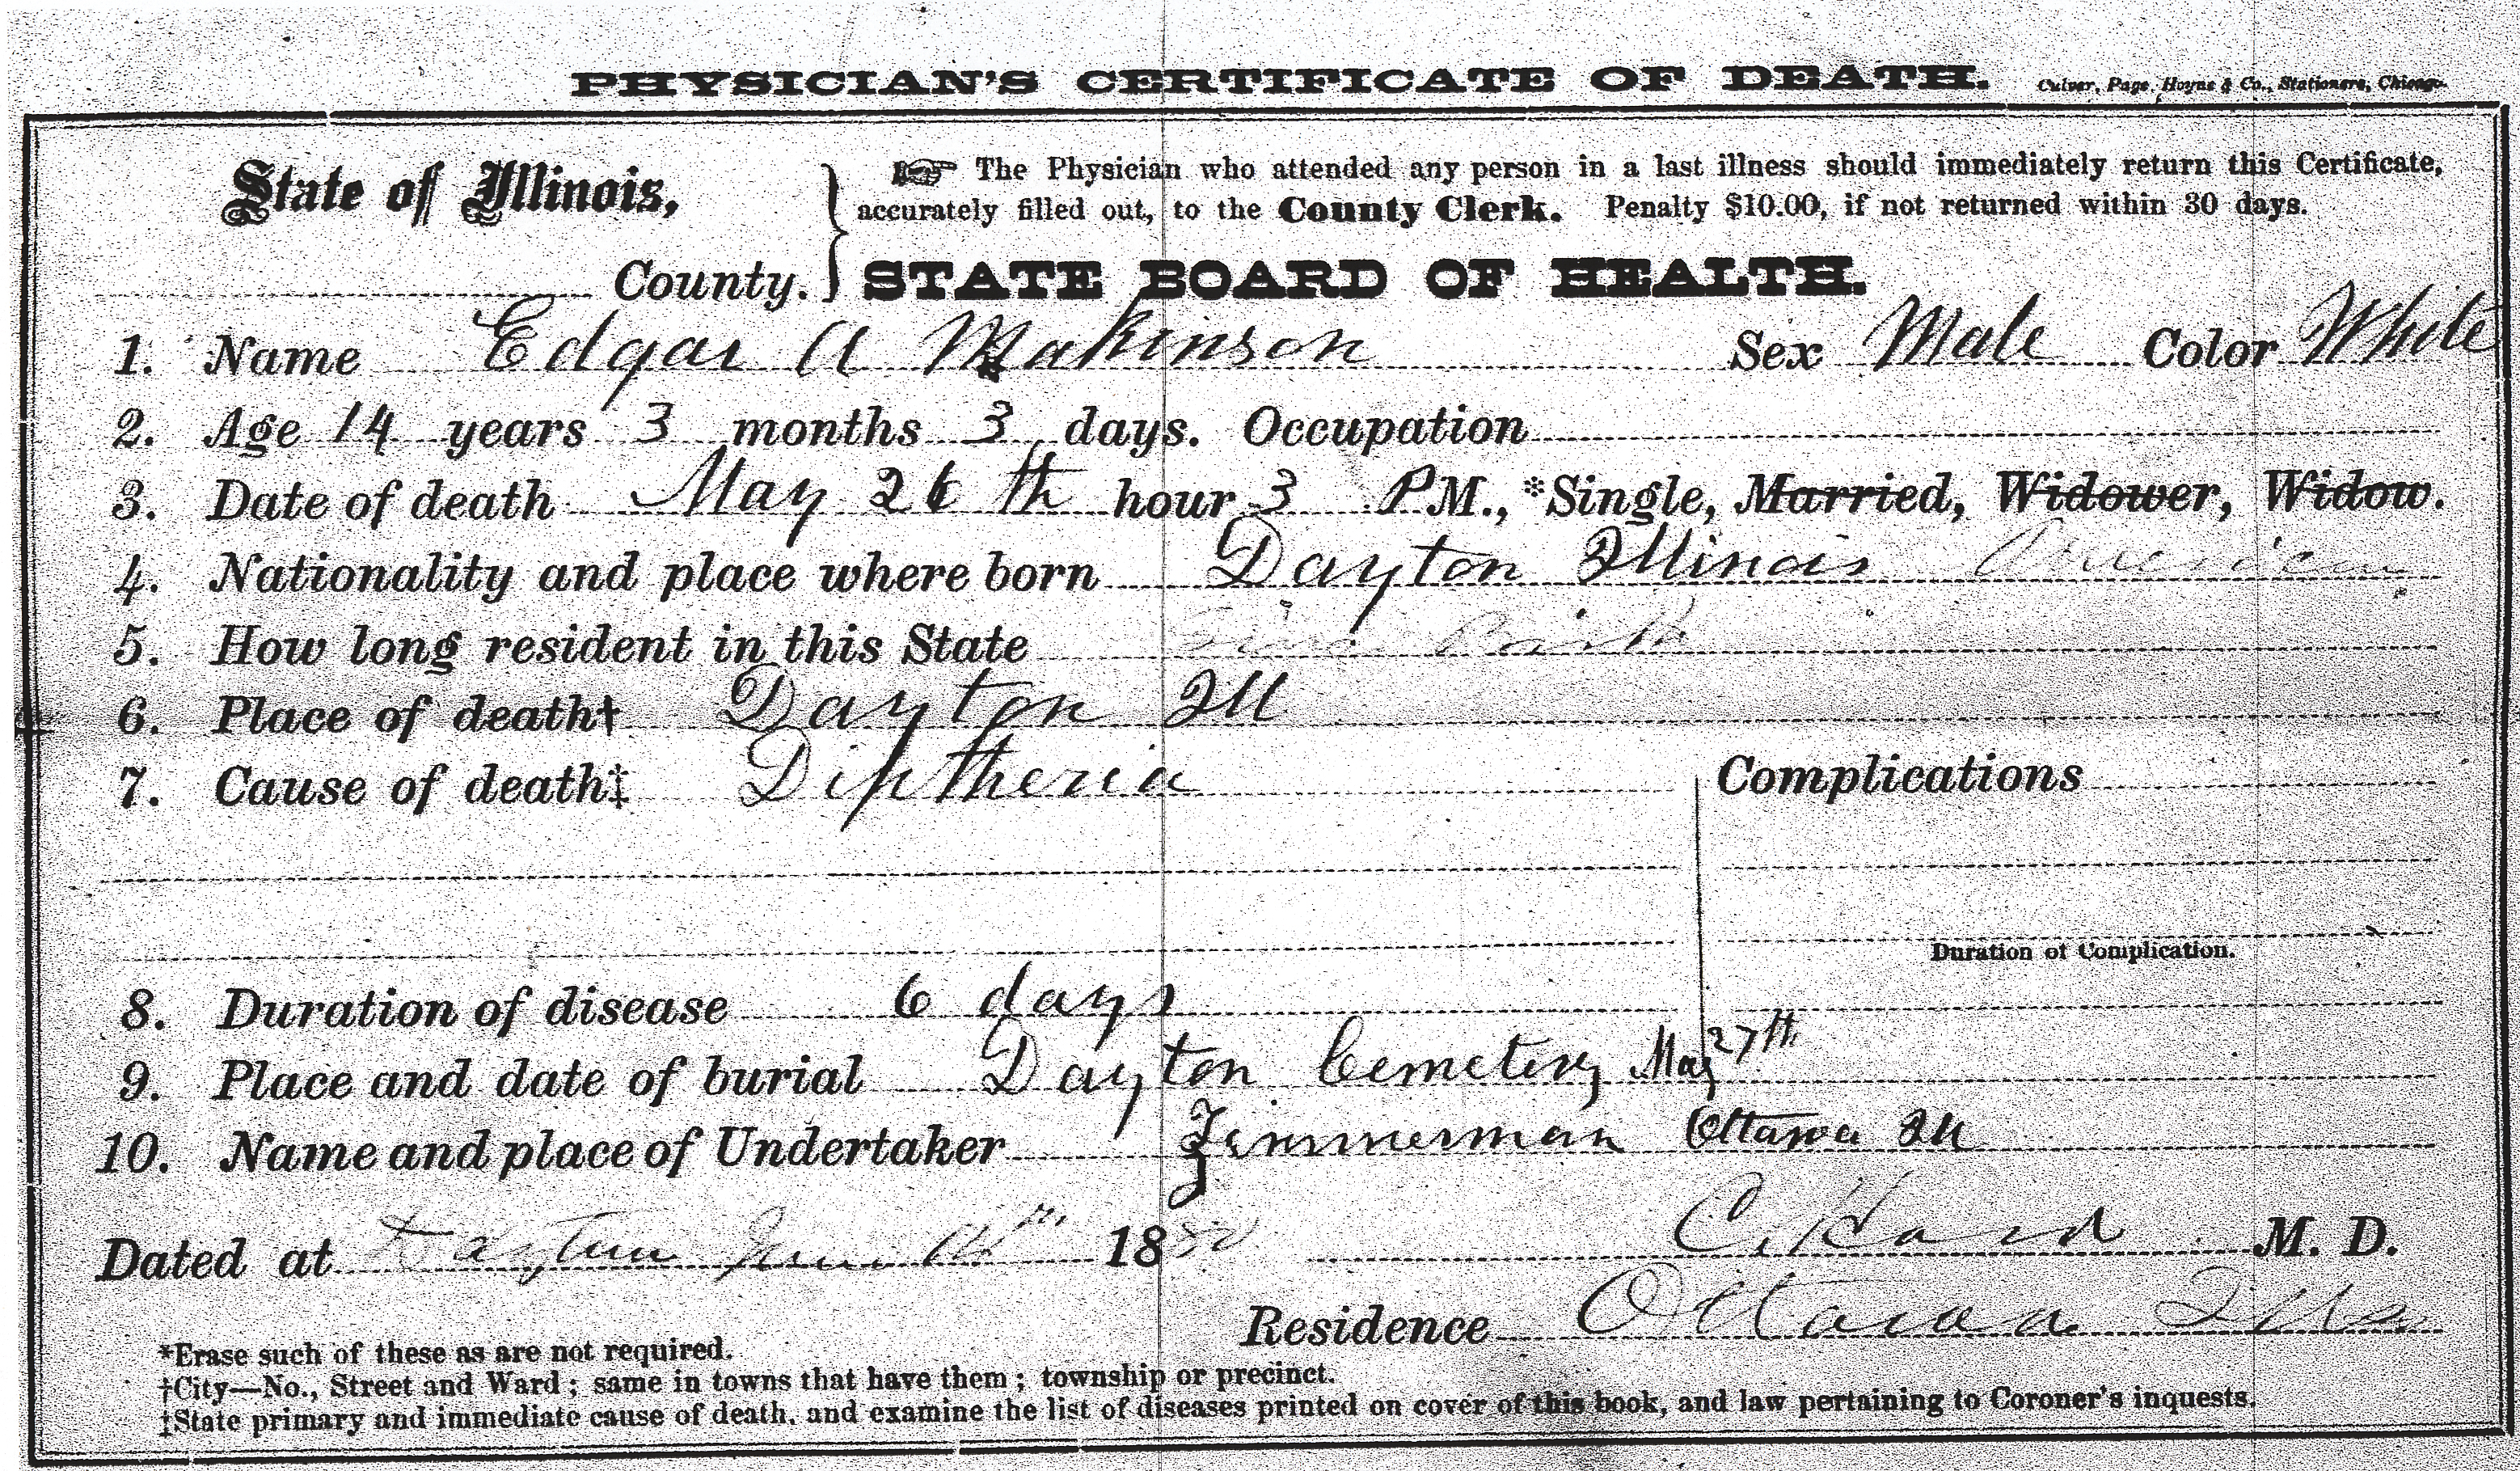 PHYSICIAN'S CERTIFICATE OF DEATH. Culver, Page, Hoyne & Co., Stationers, Chicago.
State of Illinois, ☞ The Physician who attended any person in a last illness should immediately return this Certificate,
accurately filled out, to the County Clerk. Penalty $10.00, if not returned within 30 days.
County. STATE BOARD OF HEALTH.
1. Name Edgar A Makinson Sex Male Color White
2. Age 14 years 3 months 3 days. Occupation
3. Date of death May 26th hour 3 P M., *Single, Married, Widower, Widow.
4. Nationality and place where born Dayton Illinois American
5. How long resident in this State Since Birth
6. Place of death† Dayton Ill
7. Cause of death‡ Diptheria Complications
Duration of Complication.
8. Duration of disease 6 days
9. Place and date of burial Dayton Cemetery May 27th
10. Name and place of Undertaker Zimmerman Ottawa Ill
Dated at Dayton June 18 C. Hard M. D.
Residence Ottawa Ills
*Erase such of these as are not required.
†City—No., Street and Ward; same in towns that have them; township or precinct.
‡State primary and immediate cause of death, and examine the list of diseases printed on cover of this book, and law pertaining to Coroner's inquests.